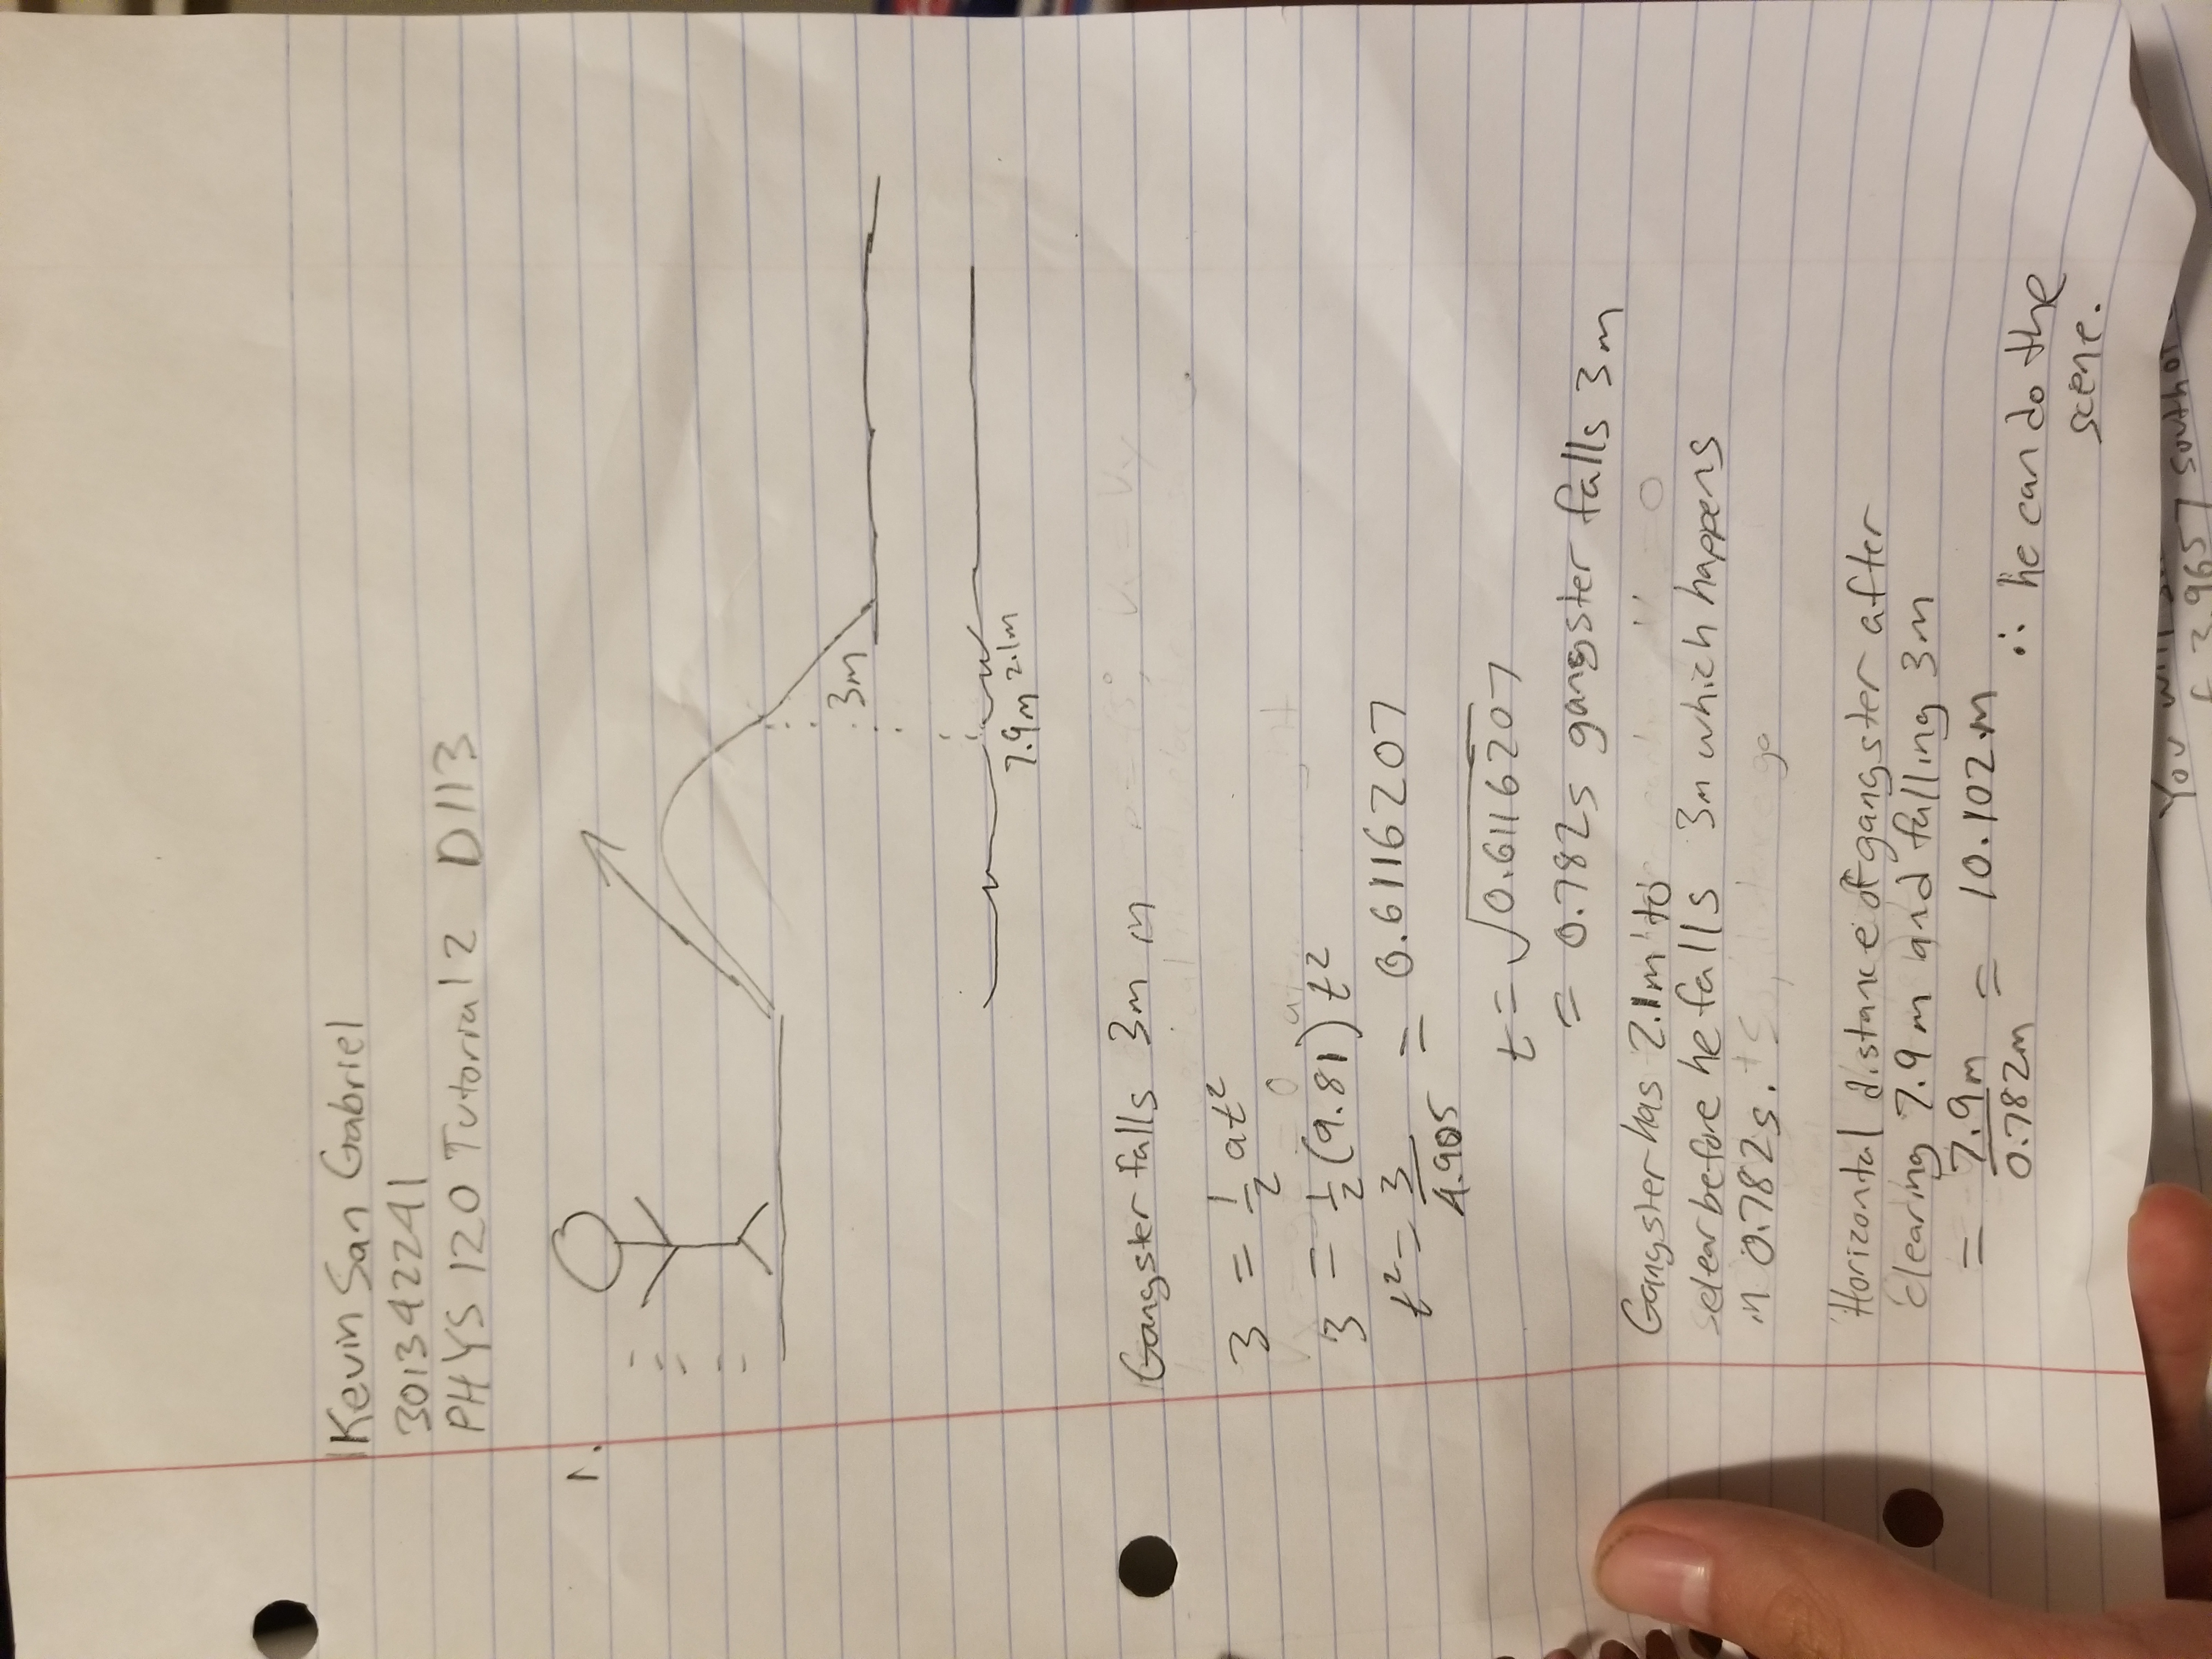 Kevin San Gabriel
301342241
PHYS 120 Tutorial 2 D113
1.
3m
7.9m 2.1m
Gangster falls 3m m
3 = 1/2 at²
3 = 1/2 (9.81) t²
t² = 3/4.905 = 0.6116207
t = √0.6116207
= 0.782s gangster falls 3m
Gangster has 2.1m to
clear before he falls 3m which happens
in 0.782s.
Horizontal distance of gangster after
clearing 7.9m and falling 3m
= 7.9m/0.782m = 10.102m
∴ he can do the
scene.
You
3.9657 south of